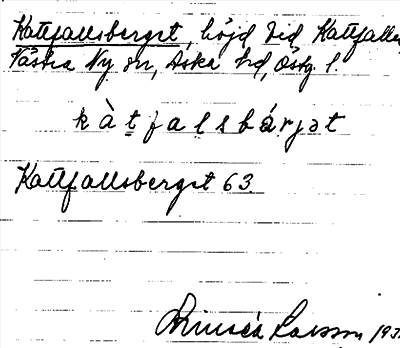 Kattfallsberget, höjd vid Kattfallen,
Västra Ny sn, Aska hd, Östg. l.
kàtfalsbárjət
Kattfallsberget 63
Larsson 193